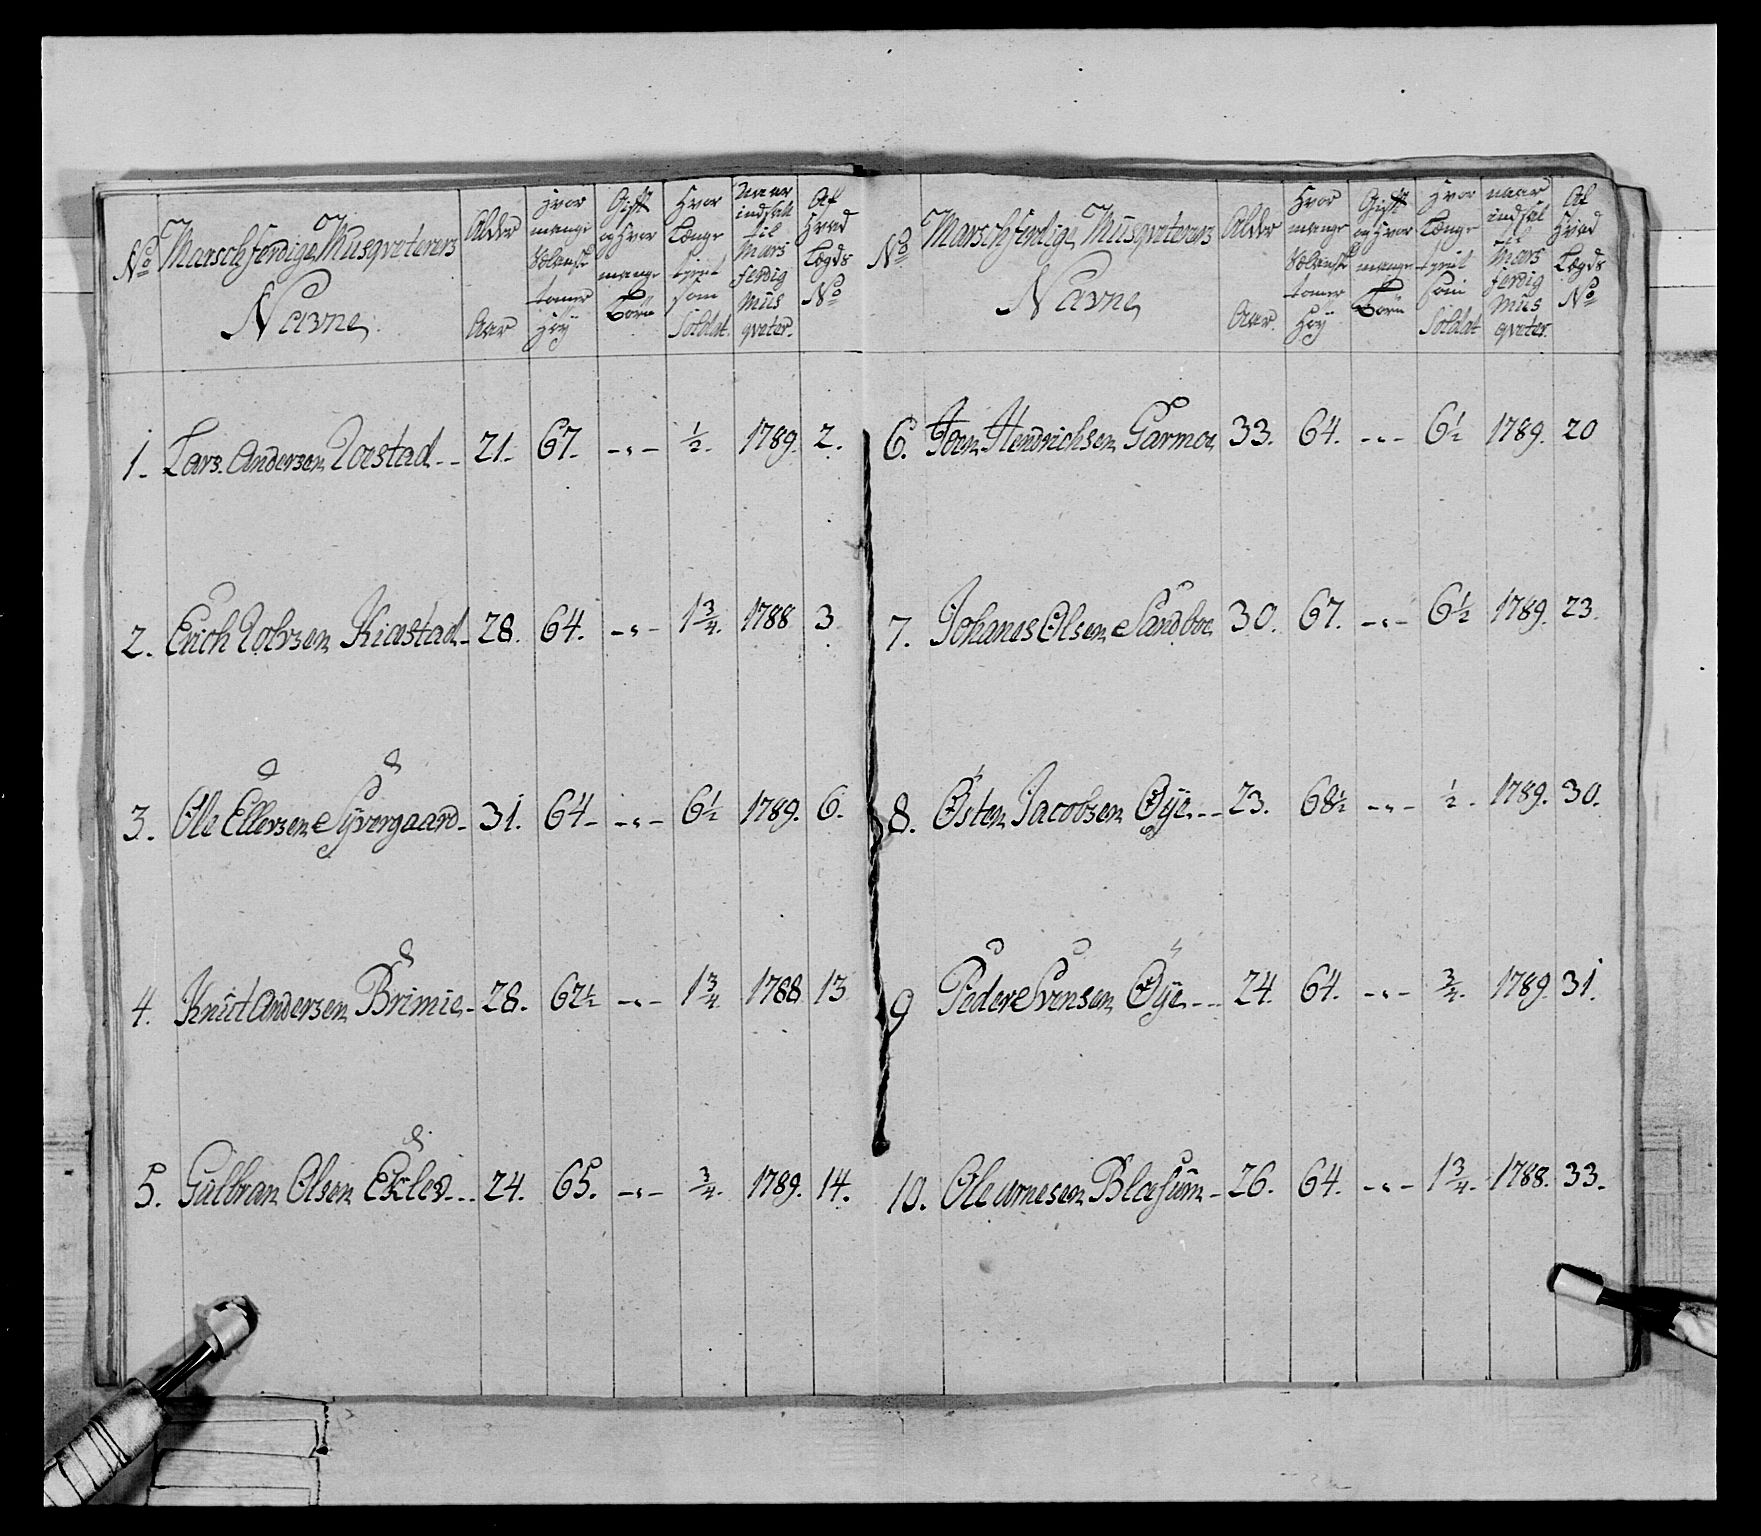 No Marschferdige Musqveterers Navne
Alder Aar
Hvor mange Tomer Høÿ
Gift og Hvor mange Børn
Hvor Længe tient som Soldat
Naar indsatt til Mars ferdig Mus qveter.
Af Hvad Lægds No
1. Lars Andersen Loestad - - 21. 67. - " - ½. 1789. 2.
2. Erich Tolvsen Kiastad - 28. 64. - " - 1¾. 1788 3.
3. Ole Ellevsen Syvergaard - 31. 64 - - " - 6½ 1789. 6.
4. Knut Andersen Brimie - 28. 62½ - " - 1¾ 1788 13
5. Gulbran Olsen Eklev - - 24. 65. - " - ¾. 1789. 14.
No Marschferdige Musqveterers Navne
Alder Aar.
Hvor mange Tomer Høÿ
Gift og Hvor mange Børn
Hvor Længe tient som Soldat
naar indsat til Mars ferdig Mus qveter.
Af Hvad Lægds No
6. Joen Hendrichsen Garmoe 33. 64. - " - 6½ 1789. 20
7. Johanes Olsen Sandboe 30. 67. - " - 6½ 1789. 23.
8. Østen Jacobsen Øÿe - - 23. 68½ - " - ½ - 1789. 30.
9 Peder Svensen Øÿe - - 24. 64. - " - ¾. 1789. 31.
10. Ole Arnesen Blæsum - 26. 64. - " - 1¾. 1788. 33.